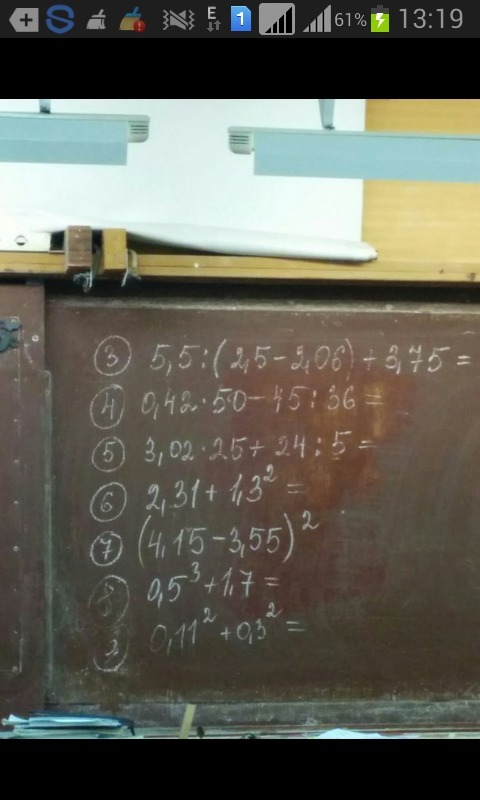 E 1 61% 13:19
③ 5,5:(2,5-2,06)+3,75=
④ 0,42·50-45:36=
⑤ 3,02·25+24:5=
⑥ 2,31+1,3²=
⑦ (4,15-3,55)²
⑧ 0,5³+1,7=
0,11²+0,3²=